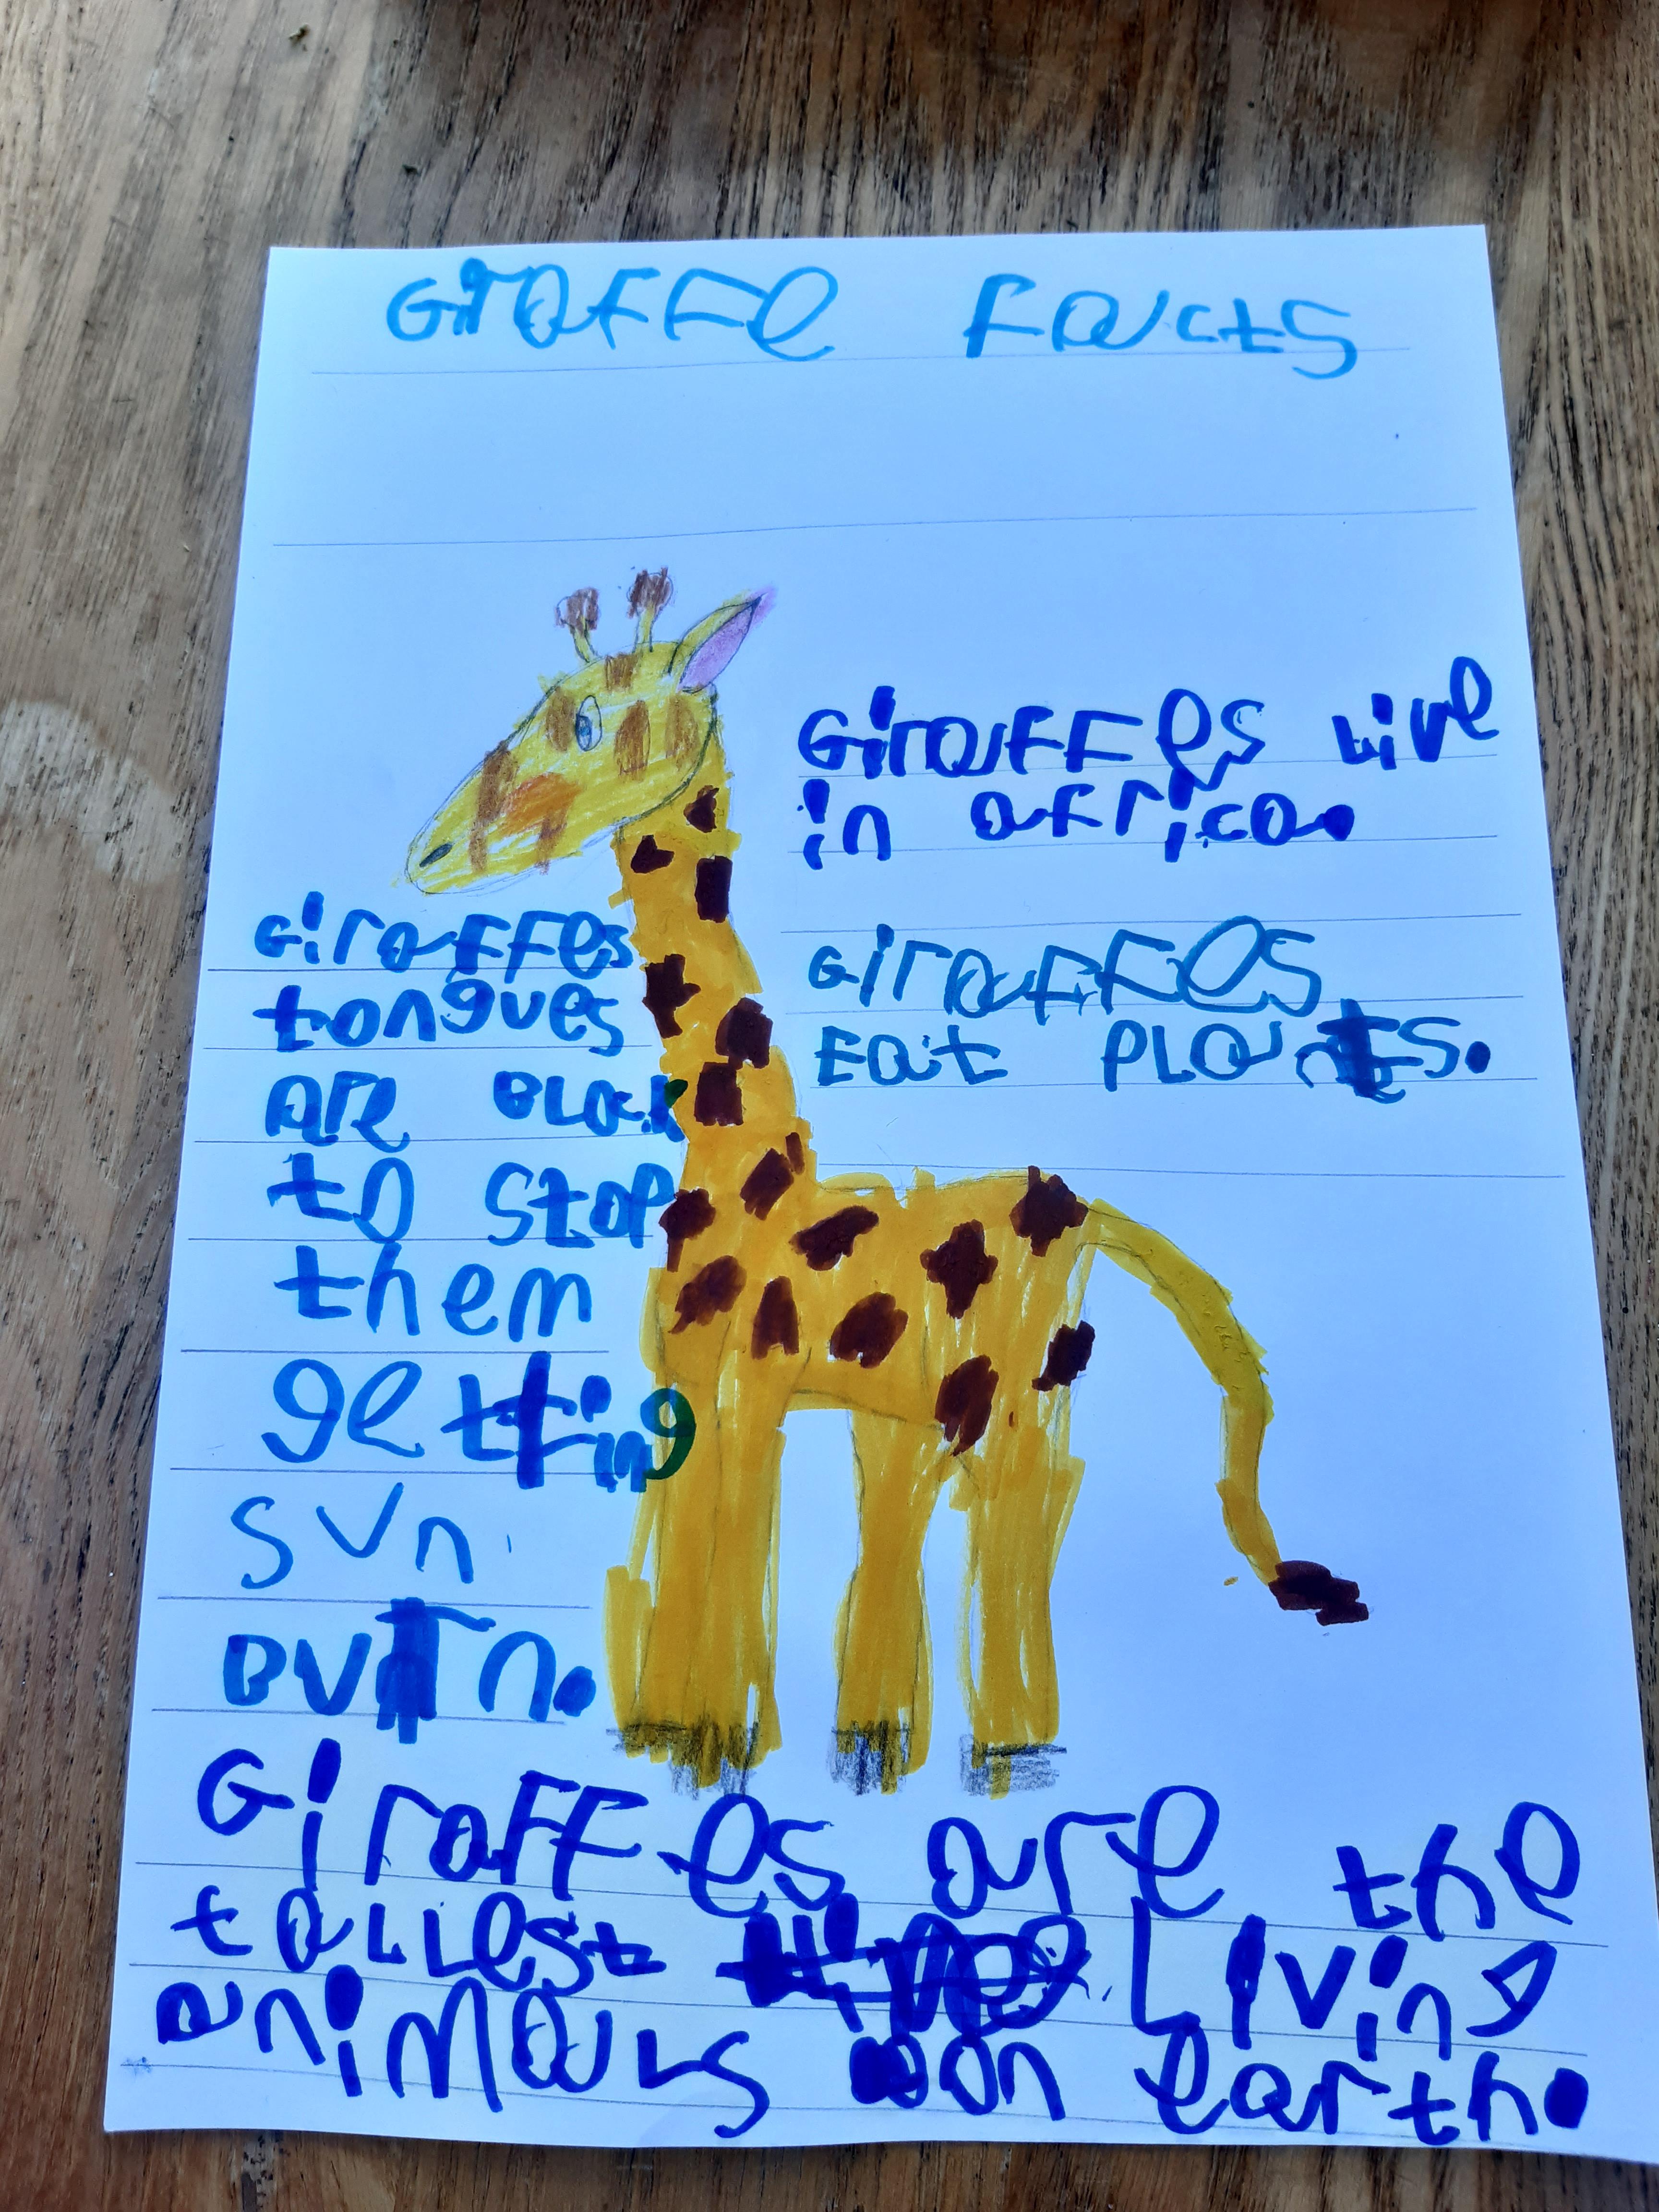 GiraFFe Facts
GiraFFes Live
in aFrica.
GiraFFes
Eat PLants.
GiraFFes
tongues
are BLacK
to stop
them
getting
sun
Burn.
GiraFFes are the
taLLest Living
animaLs on earth.